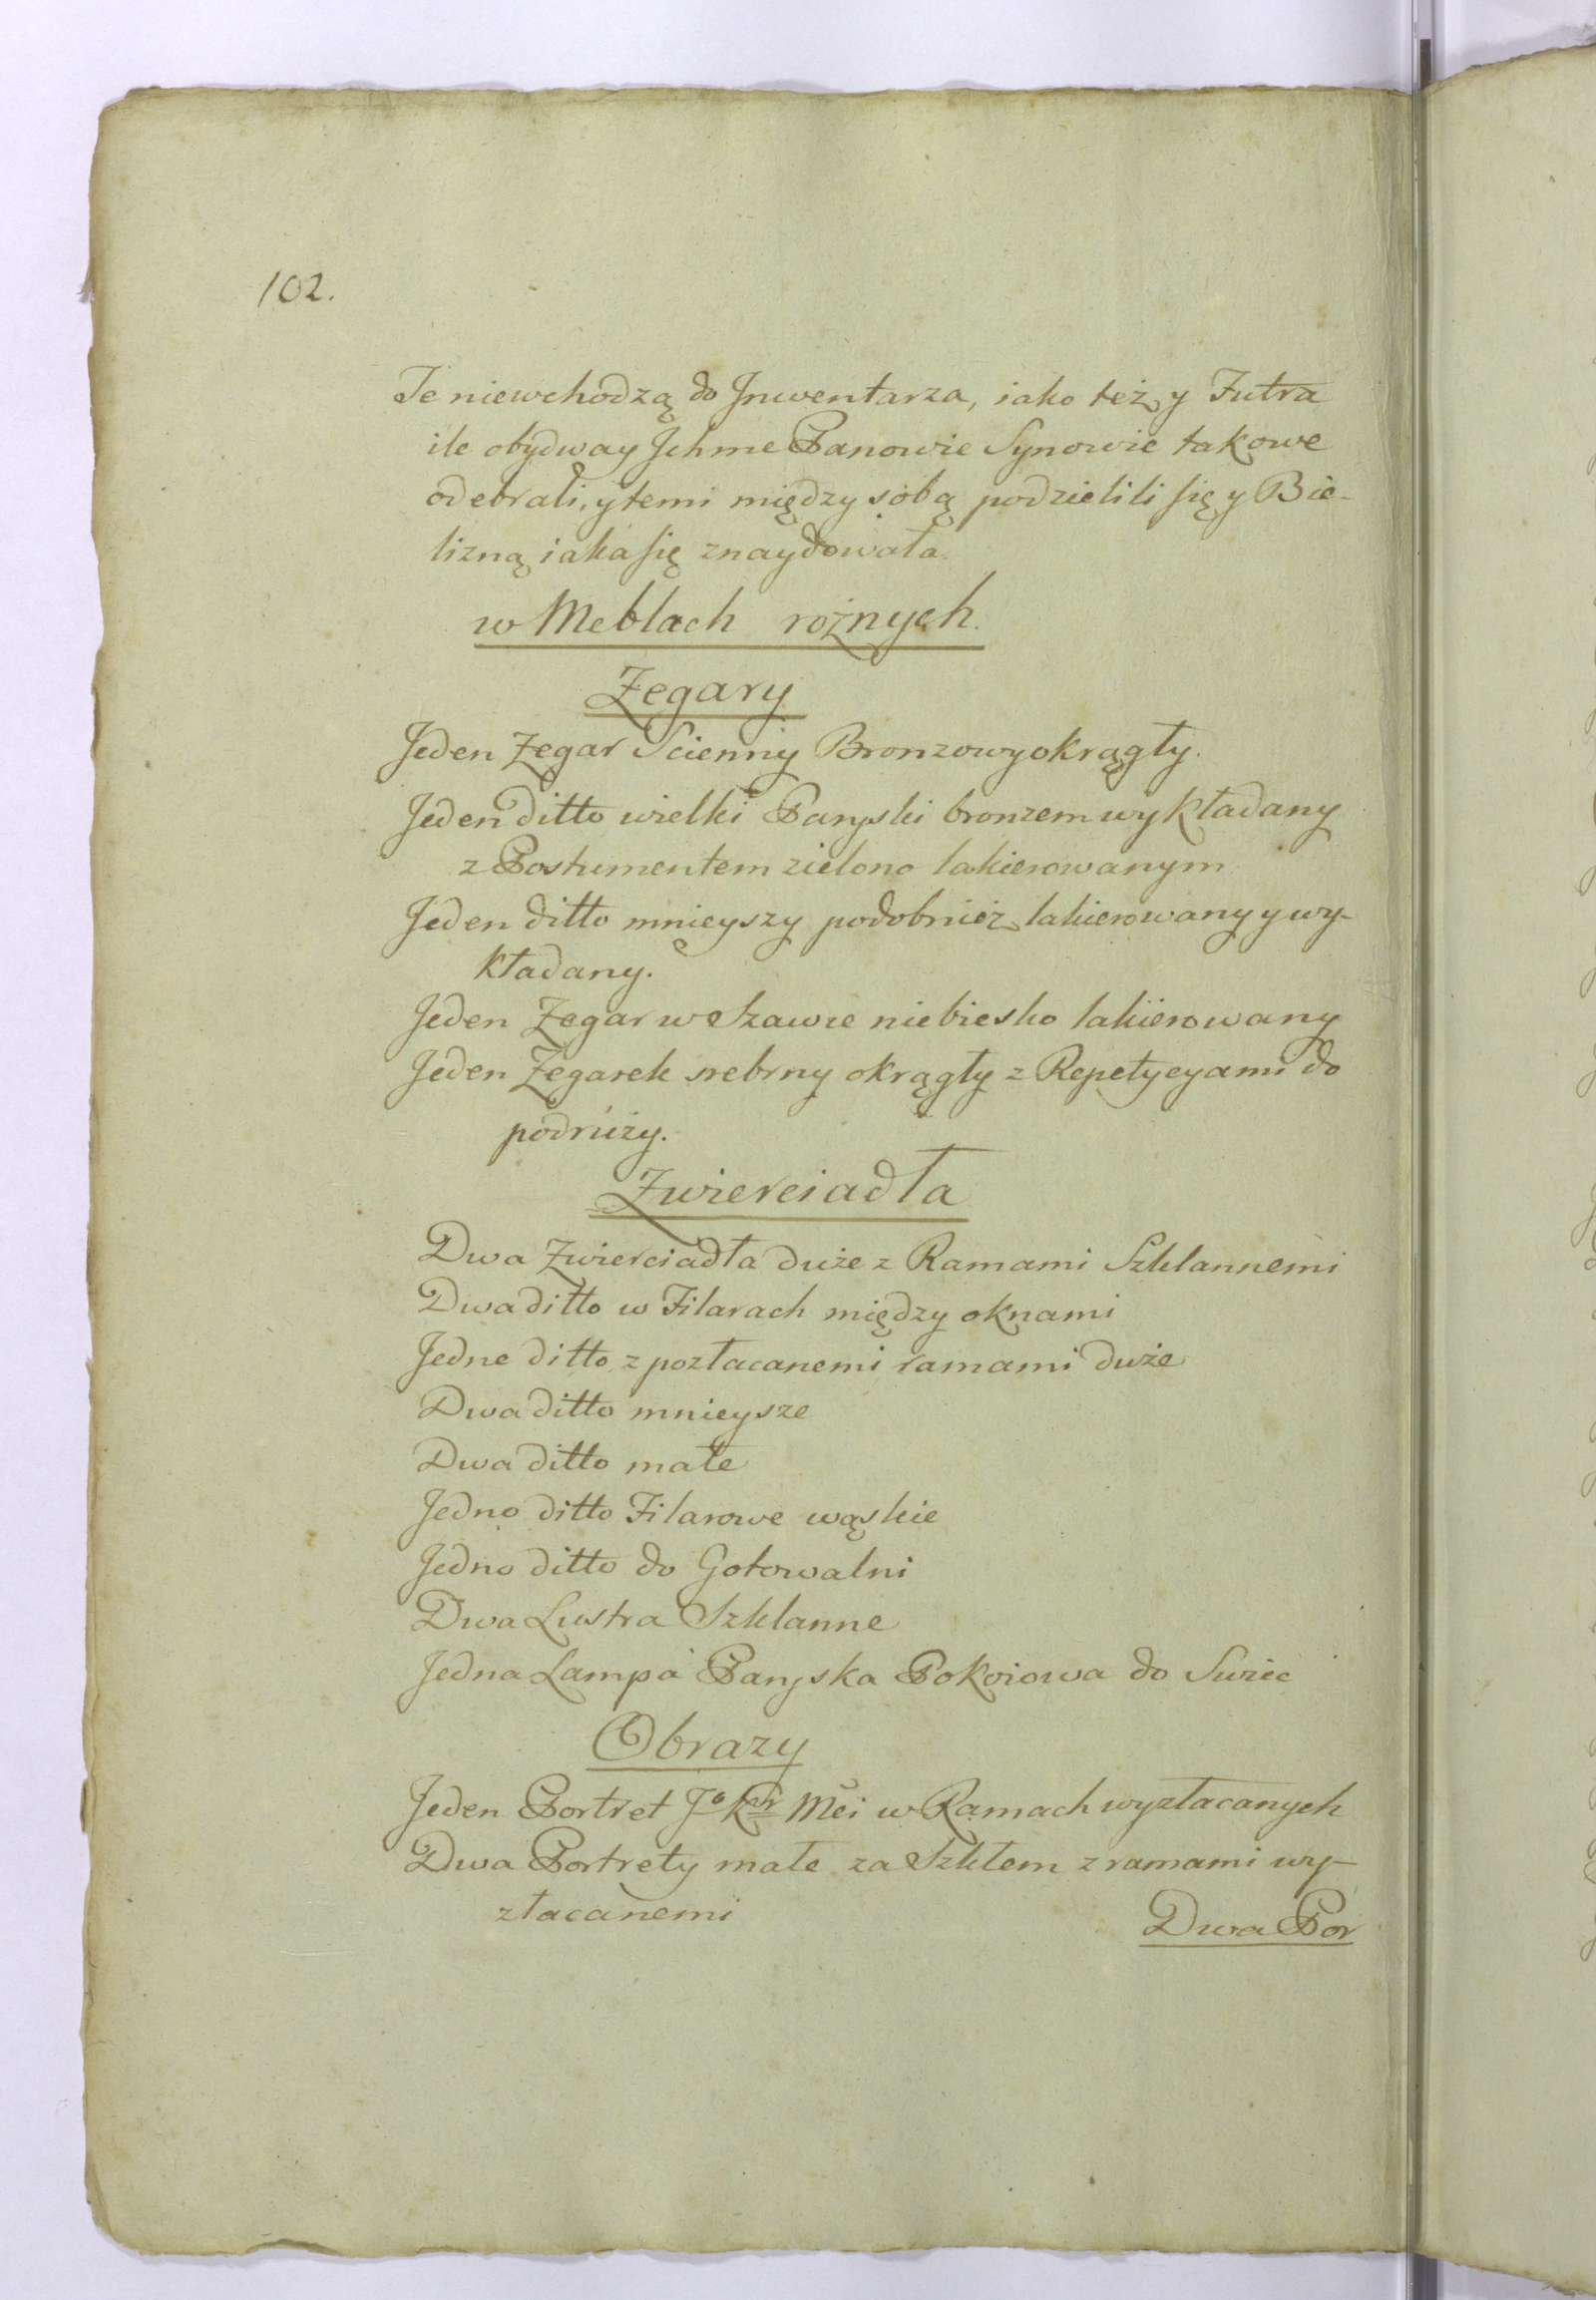 102.
Te niewchodzą do Jnwentarza, iako też y Futra
ile obydway Jchme Panowie Synowie takowe
odebrali, y temi między sobą podzielili się y Bie-
lizną iaka się znaydowała
w Meblach rożnych.
Zegary
Jeden Zegar Scienny Bronzowy okrągły.
Jeden ditto wielki Paryski bronzem wykładany
z Postumentem zielono lakierowanym
Jeden ditto mnieyszy podobnież lakierowany y wy-
kładany.
Jeden Zegar w Szawie niebiesko lakierowany
Jeden Zegarek srebrny okrągły z Repetycyami do
podruży.
Zwierciadła
Dwa Zwierciadła duże z Ramami Szklannemi
Dwa ditto w Filarach między oknami
Jedne ditto z pozłacanemi ramami duże
Dwa ditto mnieysze
Dwa ditto małe
Jedno ditto Filarowe wąskie
Jedno ditto do Gotowalni
Dwa Lustra Szklanne
Jedna Lampa Paryska Pokoiowa do Swiec
Obrazy
Jeden Portret Jo Kr Mci w Ramach wyzłacanych
Dwa Portrety małe za Szkłem z ramami wy-
złacanemi
Dwa Por